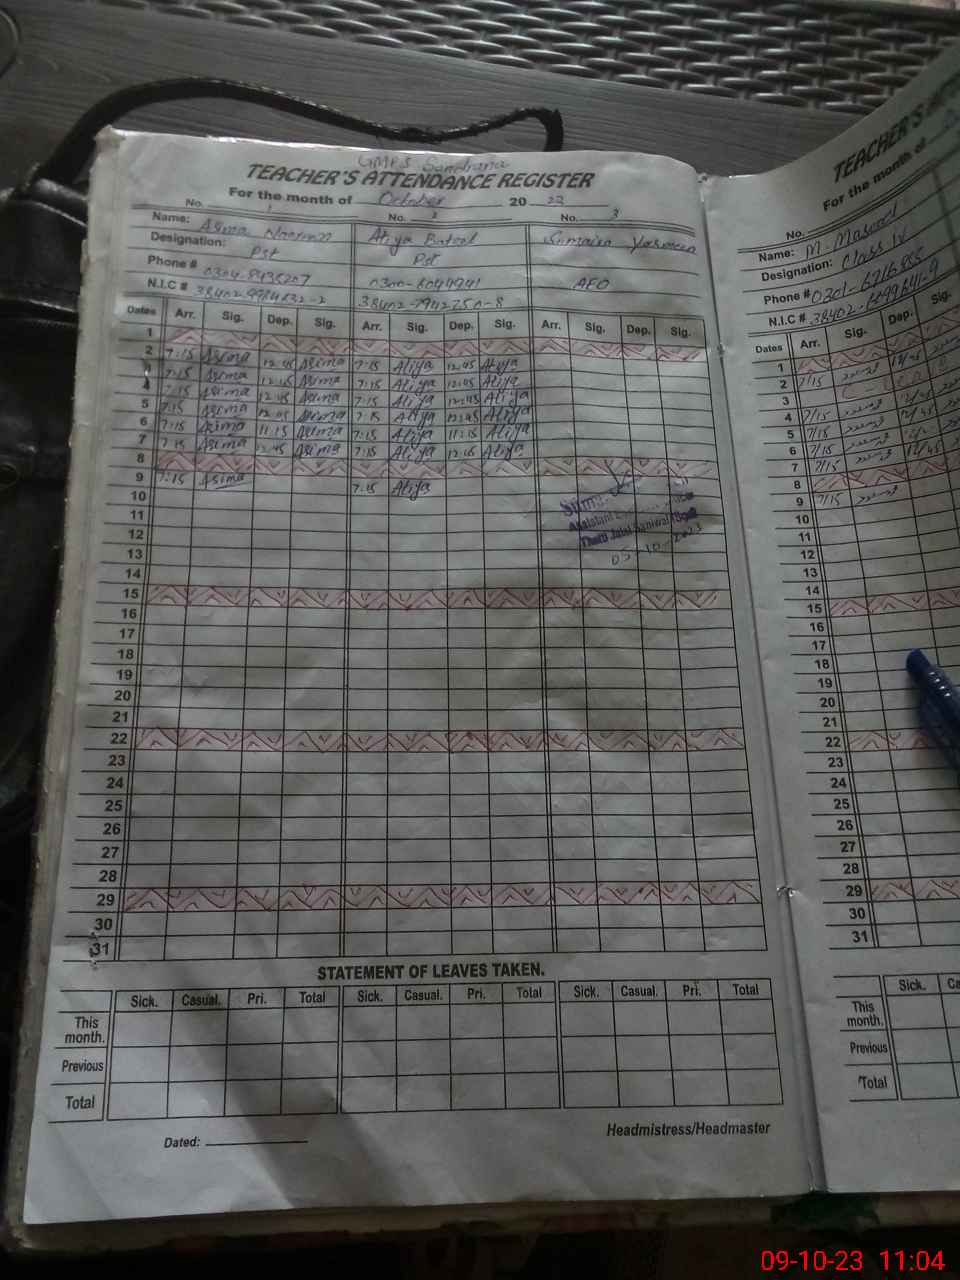 GMPS Sandrana
TEACHER'S ATTENDANCE REGISTER
For the month of October 20 23
No. 1 No. 2 No. 3
Name: Asima Atiya Batool Sumaira Yasmeen
Designation: Pst Pst AEO
Phone # 0304-8435207 0300-6044941
N.I.C # 38402-7942750-8
Dates Arr. Sig. Dep. Sig. Arr. Sig. Dep. Sig. Arr. Sig. Dep. Sig.
1
2 7:15 Asima 12:45 Asima 7:15 Atiya 12:45 Atiya
3 7:15 Asima 12:45 Asima 7:15 Atiya 12:45 Atiya
4 7:15 Asima 12:45 Asima 7:15 Atiya 12:45 Atiya
5 7:15 Asima 12:45 Asima 7:15 Atiya 12:45 Atiya
6 7:15 Asima 11:15 Asima 7:15 Atiya 11:15 Atiya
7 7:15 Asima 12:45 Asima 7:15 Atiya 12:45 Atiya
8
9 7:15 Asima 7:15 Atiya
10
11
12
13
14
15
16
17
18
19
20
21
22
23
24
25
26
27
28
29
30
31
Assistant
05-10-2023
STATEMENT OF LEAVES TAKEN.
Sick. Casual. Pri. Total Sick. Casual. Pri. Total Sick. Casual. Pri. Total
This month.
Previous
Total
Dated:
Headmistress/Headmaster
TEACHER'S
For the month of
No.
Name: M. Masood
Designation: Class IV
Phone # 0301-6716855
N.I.C # 38402-
Dates Arr. Sig. Dep. Sig.
1
2 7/15
3
4 7/15
5 7/15
6 7/15
7 7/15 12/45
8
9 7/15
10
11
12
13
14
15
16
17
18
19
20
21
22
23
24
25
26
27
28
29
30
31
Sick.
This month.
Previous
Total
09-10-23 11:04